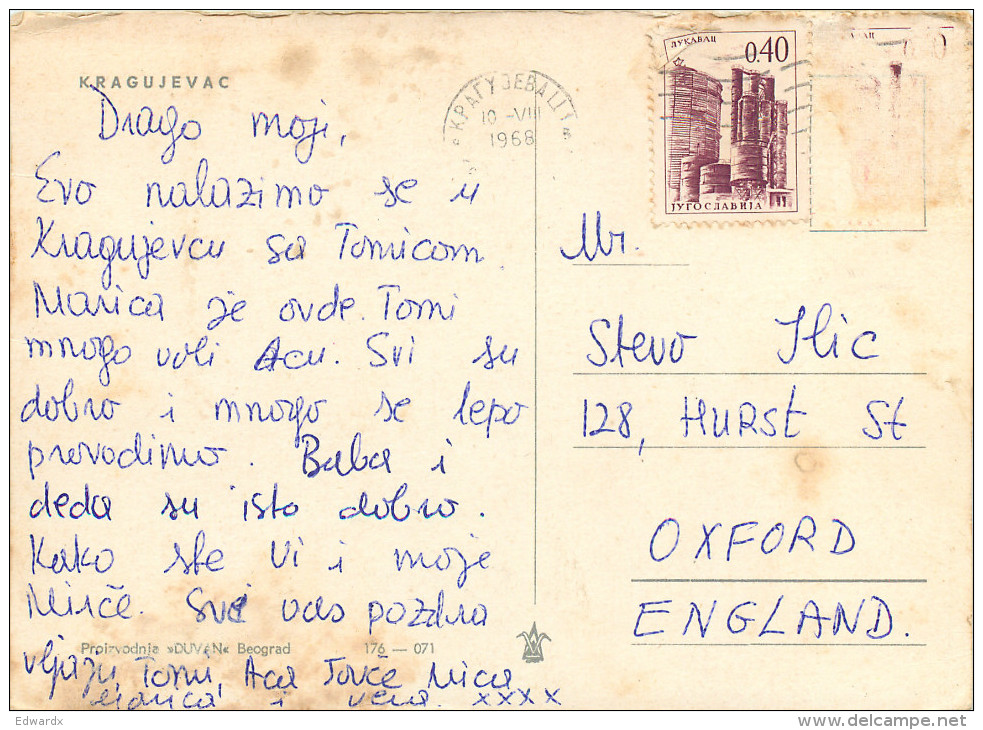 KRAGUJEVAC
Drago moji,
Evo nalazimo se u
Kragujevcu sa Tomicom
Marica je ovde. Tomi
mnogo voli Acu. Svi su
dobro i mnogo se lepo
provodimo. Baba i
deda su isto dobro.
Kako ste Vi i moje
Mirče. Svi vas pozdra
vljaju Tomi, Aca Jovče Mica
Marica i Vera. xxxx
Proizvodnja »DUVAN« Beograd 176 — 071
10 -VIII
1968
ЛУКАВАЦ
0.40
ЈУГОСЛАВИЈА
Mr.
Stevo Ilic
128, HURST St
OXFORD
ENGLAND.
Edwardx
www.delcampe.net